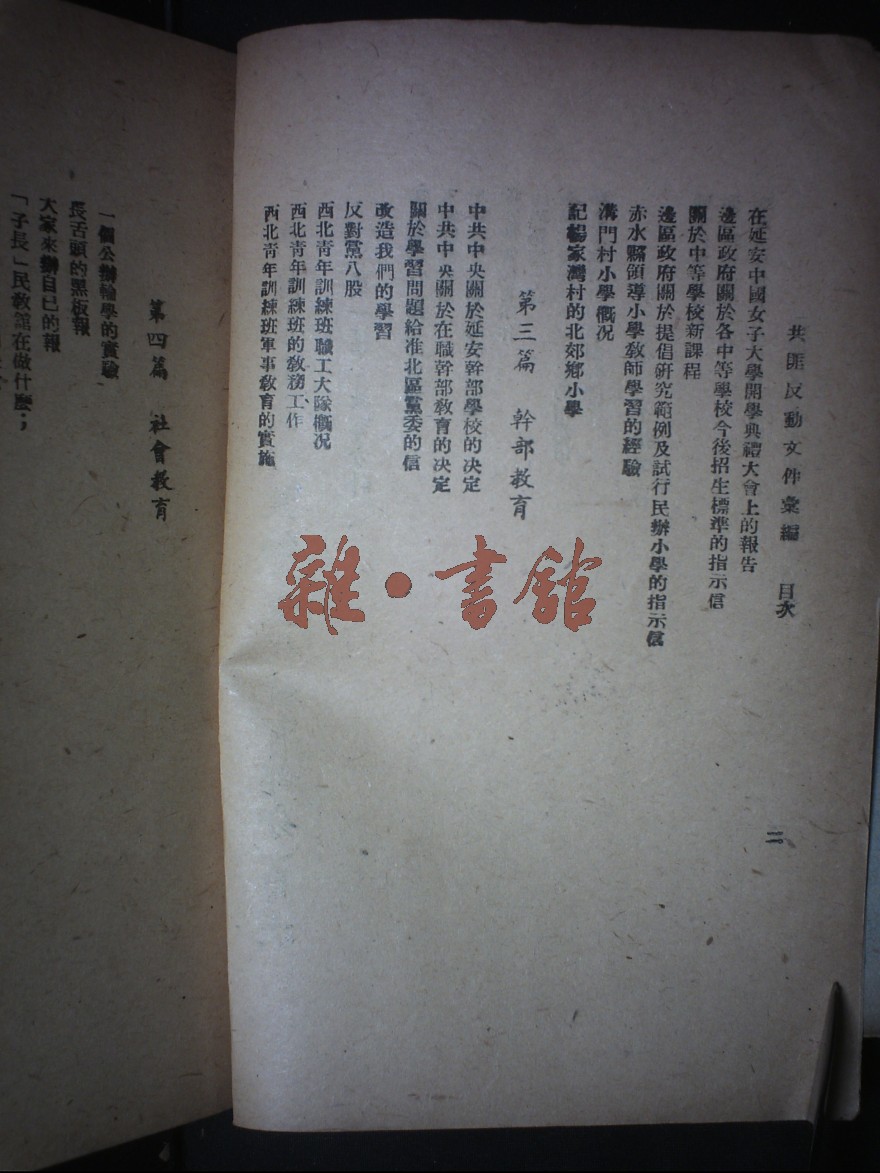 共匪反動文件彙編　目次
二
在延安中國女子大學開學典禮大會上的報告
邊區政府關於各中等學校今後招生標準的指示信
關於中等學校新課程
邊區政府關於提倡研究範例及試行民辦小學的指示信
赤水縣領導小學教師學習的經驗
溝門村小學概況
記楊家灣村的北郊鄉小學
第三篇　幹部教育
中共中央關於延安幹部學校的决定
中共中央關於在職幹部教育的决定
關於學習問題給淮北區黨委的信
改造我們的學習
反對黨八股
西北青年訓練班職工大隊概况
西北青年訓練班的教務工作
西北青年訓練班軍事教育的實施
第四篇　社會教育
一個公辦輪學的實驗
長舌頭的黑板報
大家來辦自己的報
「子長」民教舘在做什麽；
雜·書舘